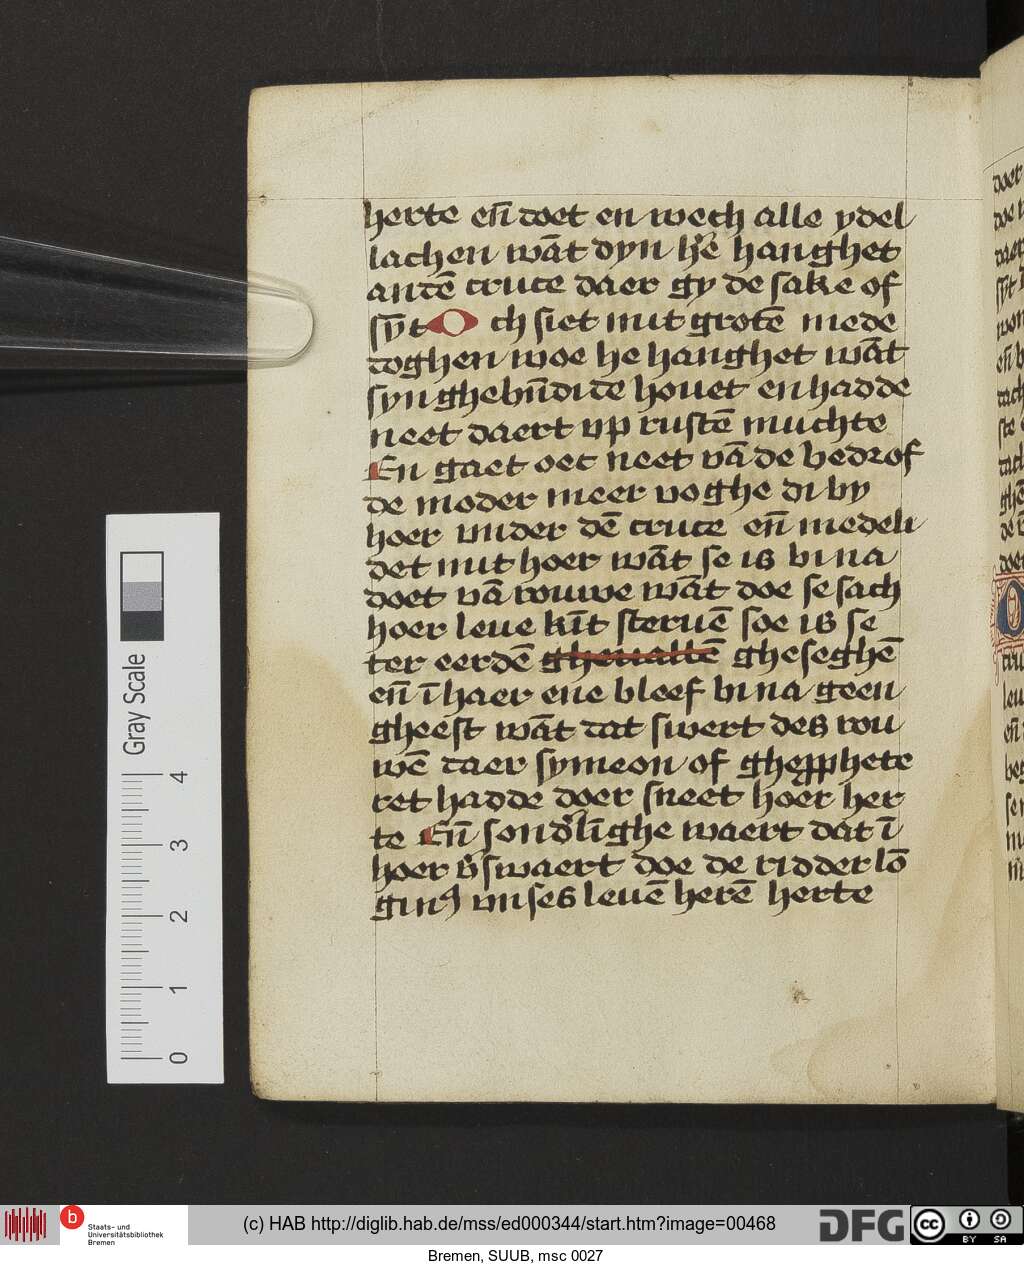 herte en̄ doet en wech alle ydel
lachen wāt dyn h̄e hanghet
andē cruce daer gy de sake of
sȳt Och siet mit grotē mede
doghen woe he hanghet wāt
syn ghebn̄dide hovet en hadde
neet daert up rustē muchte
En gaet oec neet vā de bedrof
de moder meer voghe di by
hoer under dē cruce en̄ medeli
det mit hoer wāt se is bi na
doet vā rouwe wāt doe se sach
hoer leve kīt stervē soe is se
ter eerdē ghevallē gheseghē
en̄ ī haer ene bleef bi na geen
gheest wāt dat swert des rou
wē daer symeon of ghepphete
ret hadde doer sneet hoer her
te En̄ sond'līghe waert dat ī
hoer v̄swaert doe de ridder lō
gin9 unses levē herē herte
doet
Gray Scale
4
3
2
1
0
b
Staats- und
Universitätsbibliothek
Bremen
(c) HAB http://diglib.hab.de/mss/ed000344/start.htm?image=00468
DFG
cc
BY SA
Bremen, SUUB, msc 0027